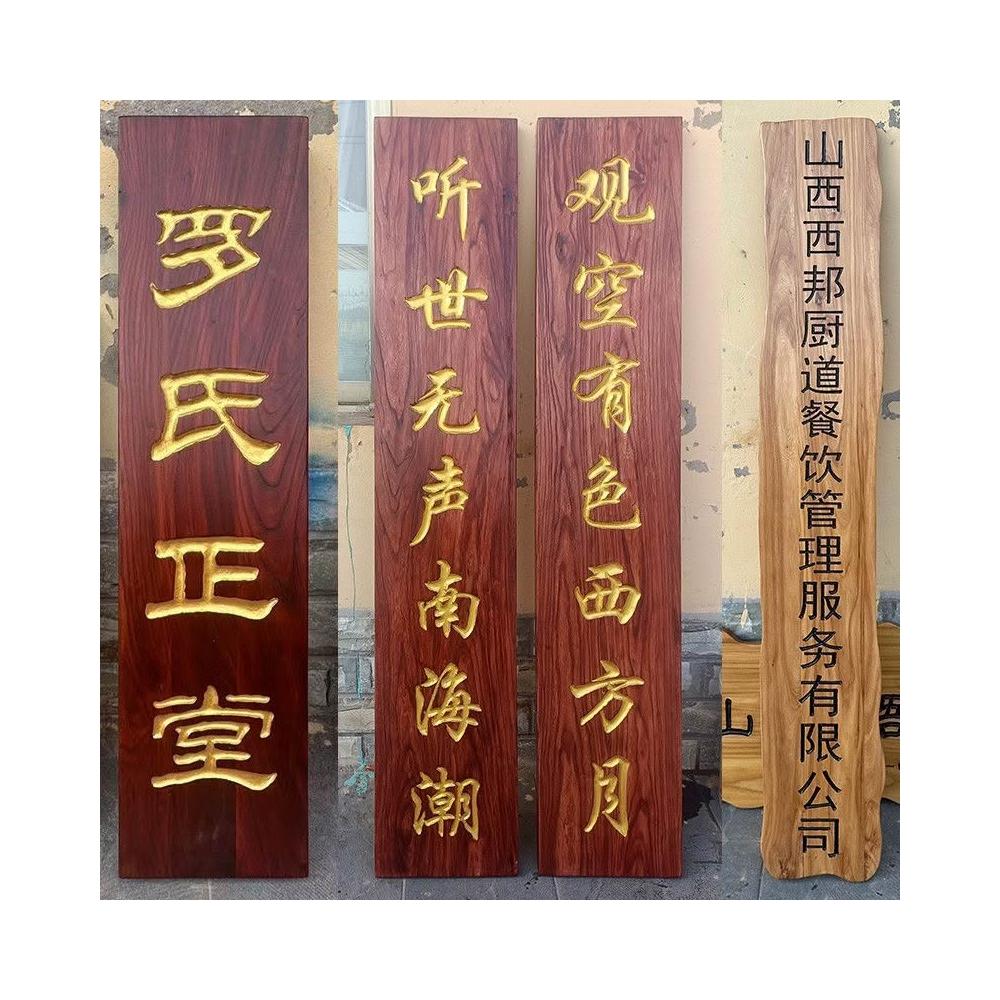 罗氏正堂
听世无声南海潮
观空有色西方月
山西西邦厨道餐饮管理服务有限公司
山